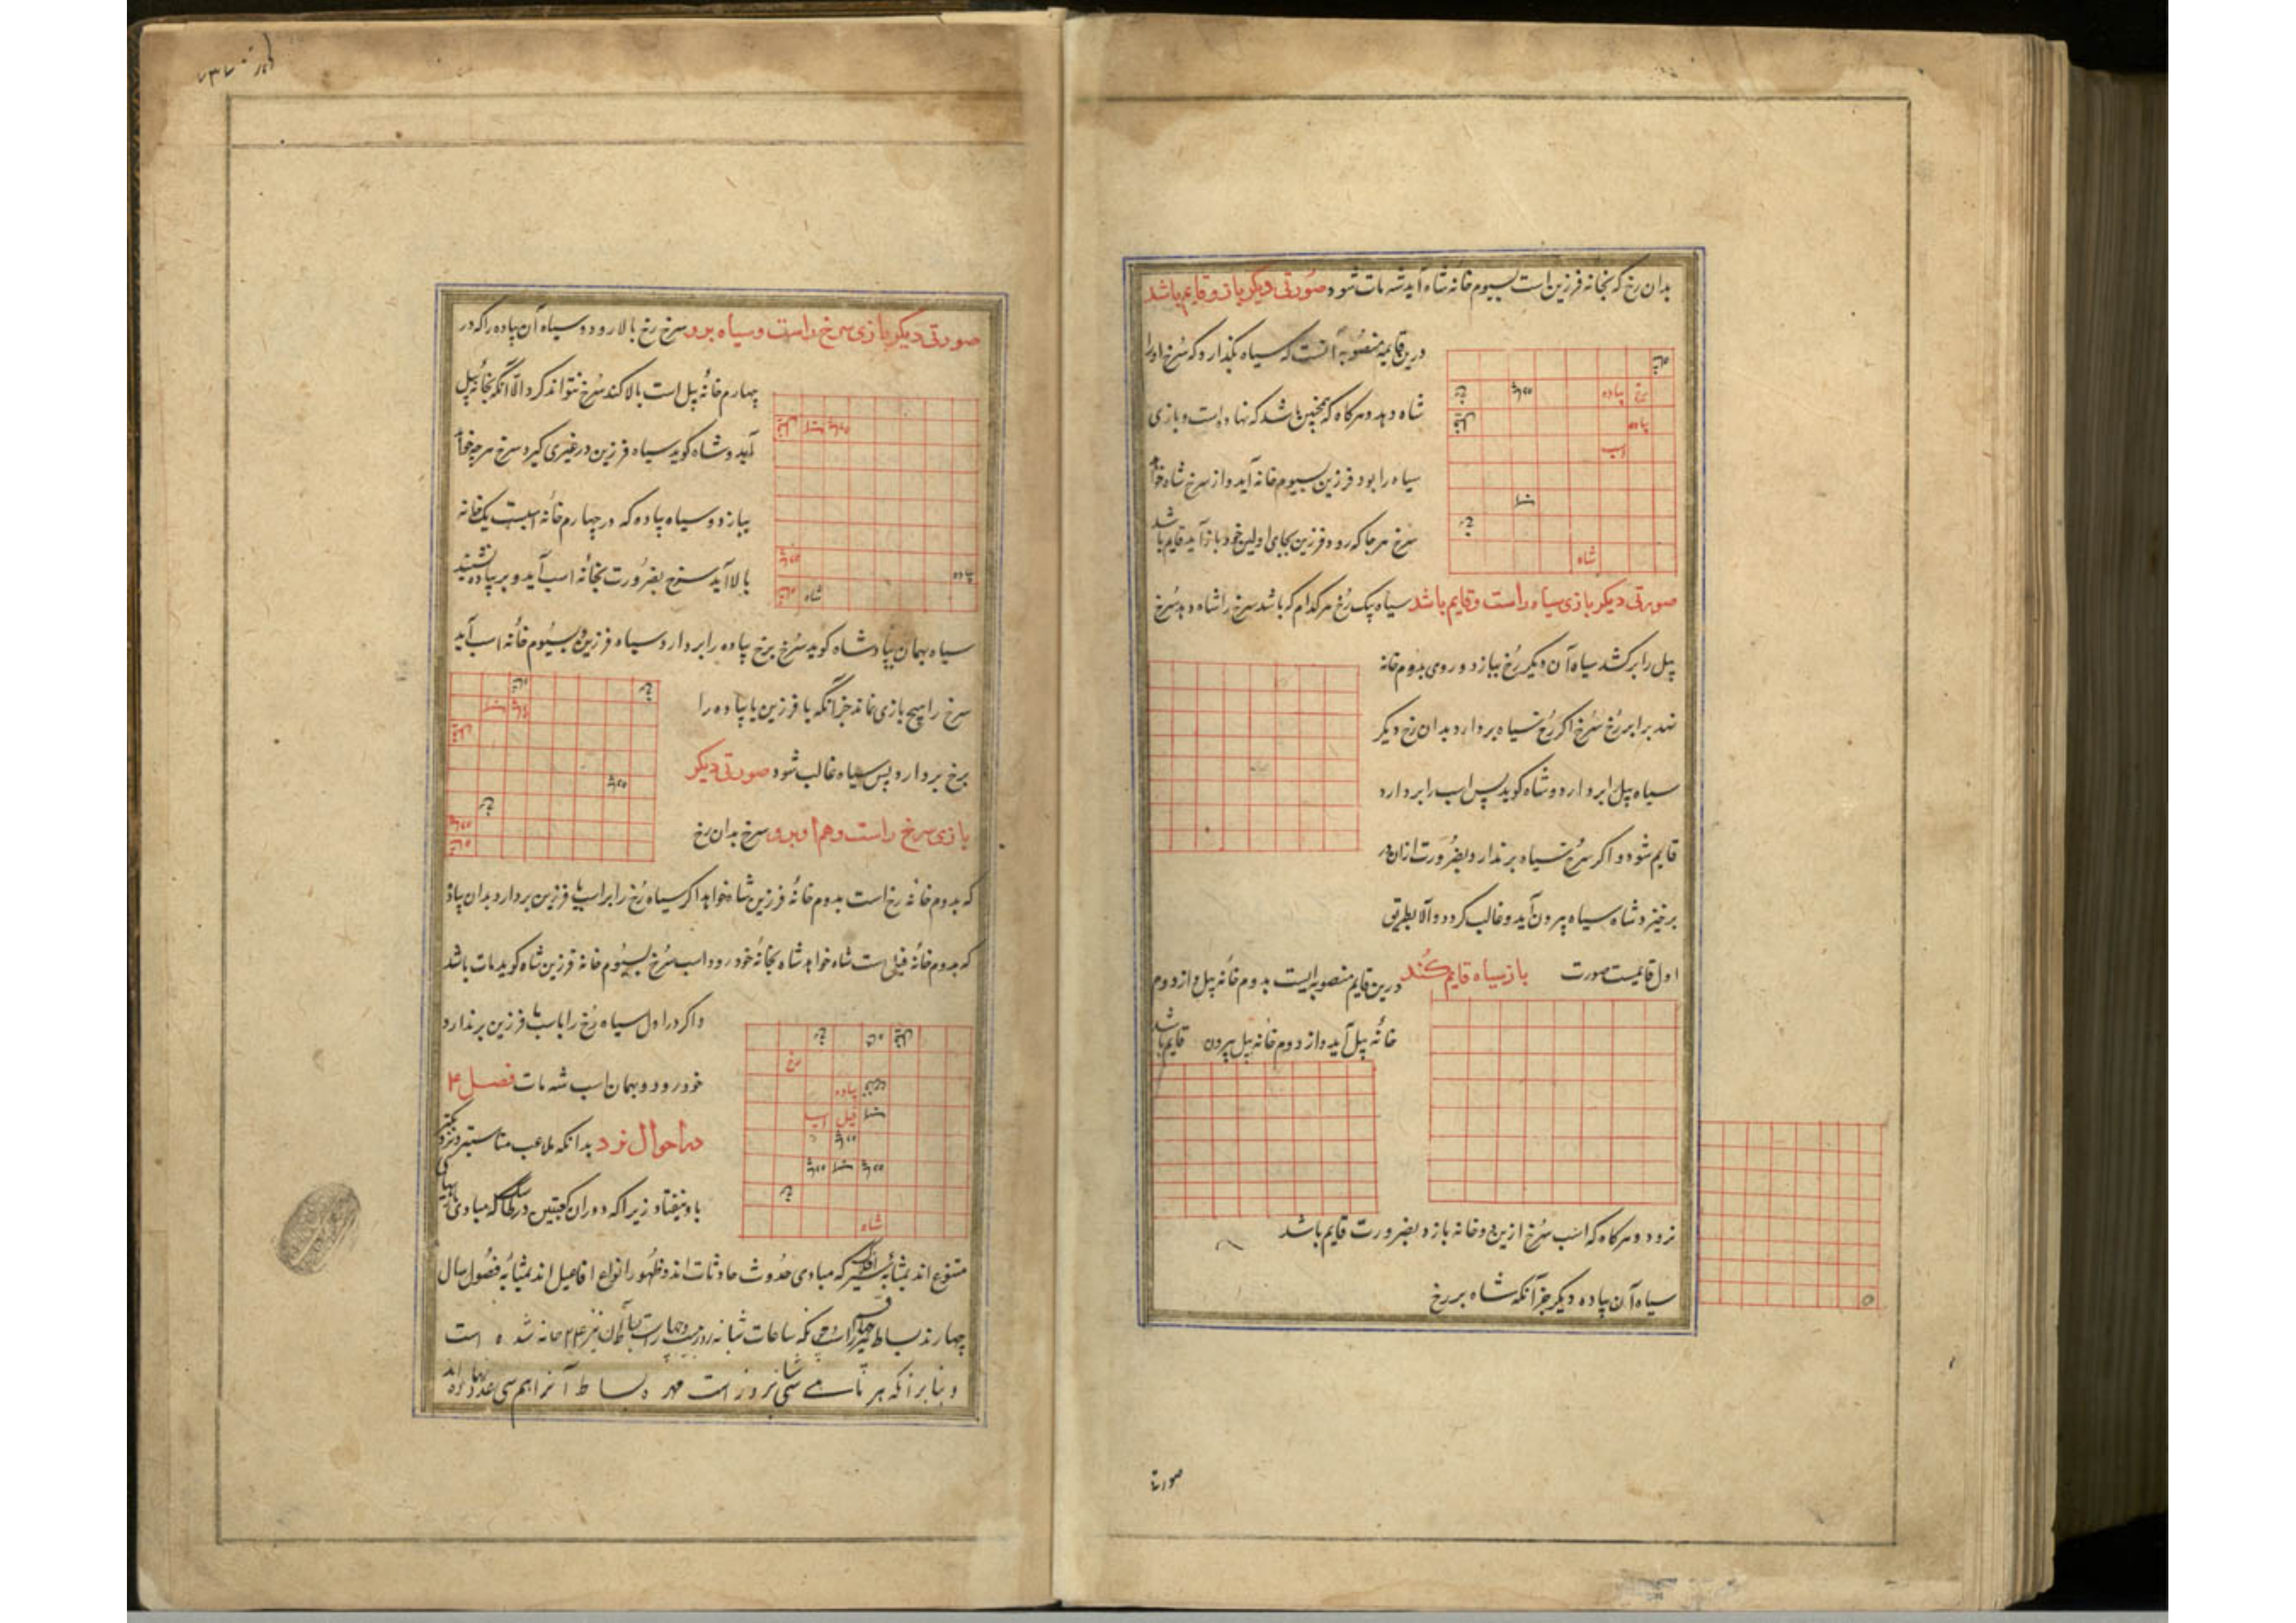 بدان رخ که بخانه فرزین است بسیوم خانه شاه آید شه مات شود صورتی دیگر باز و قایم باشد
درین قایمه منصوبه آنست که سیاه بگذارد که سرخ او را
شاه دهد و هرگاه که همچنین باشد که نهاده است و بازی
سیاه را بود فرزین بسیوم خانه آید و از سرخ شاه خواهد
سرخ هر جا که رود فرزین بجای اولین خود باز آید قایم باشد
صورتی دیگر بازی سیاه راست و قایم باشد سیاه یک رخ هر کدام که باشد سرخ را شاه دهد سرخ
پیل را برکشد سیاه آن دیگر رخ ببازد و روی بدوم خانه
نهد برابر رخ سرخ اگر رخ سیاه بردارد بدان رخ دیگر
سیاه پیل را بردارد و شاه گوید پس اسب را بردارد
قایم شود و اگر سرخ سیاه برندارد بضرورت ازان در
برخیزد شاه سیاه بیرون آید و غالب گردد و الا بطریق
اول قایمست صورت بازسیاه قایم کند درین قایم منصوبه ایست بدوم خانه پیل و از دوم
خانه پیل آید و از دوم خانه پیل بیرون قایم باشد
نرود و هرگاه که اسب سرخ ازین دو خانه بازد بضرورت قایم باشد
سیاه آن پیاده دیگر جز آنکه شاه بر رخ
صورتی
صورتی دیگر بازی سرخ راست و سیاه برد سرخ رخ بالا رود و سیاه آن پیاده را که در
چهارم خانه پیل است بالا کند سرخ نتواند کرد الا آنکه بخانه پیل
آید و شاه گوید سیاه فرزین در غیری گیرد سرخ هر چه خواهد
ببازد و سیاه پیاده که در چهارم خانه اسبست یک خانه
بالا آید سرخ بضرورت بخانه اسب آید و بر پیاده نشیند
سیاه بهمان پیاده شاه گوید سرخ برخ پیاده را بردارد سیاه فرزین بسیوم خانه اسب آید
سرخ را هیچ بازی نماند جز آنکه یا فرزین یا پیاده را
برخ بردارد پس سیاه غالب شود صورتی دیگر
بازی سرخ راست و هم او برد سرخ بدان رخ
که بدوم خانه رخ است بدوم خانه فرزین شاه خواهد اگر سیاه رخ را براسب یا فرزین بردارد بدان پیاده
که بدوم خانه فیل است شاه خواهد شاه بخانه خود رود اسب سرخ بسیوم خانه فرزین شاه گوید مات باشد
و اگر در اول سیاه رخ را باسب یا فرزین برندارد
خود رود و بهمان اسب شه مات فصل ۴
در احوال نرد بدانکه ملاعب
باو نیفتاد زیرا که دوران کعبتین که مبادی
متنوع اند بمثابه که مبادی حدوث حادثات اند و ظهور انواع افاعیل اند بمثابه فصول سال
چهارند بساط که ساعات شبانه روز بیست و چهار است نیز ۲۴ خانه شده است
و بنابر آنکه هر ماهی سی شبانروز است مهره بساط آنرا هم سی عدد نهاده اند